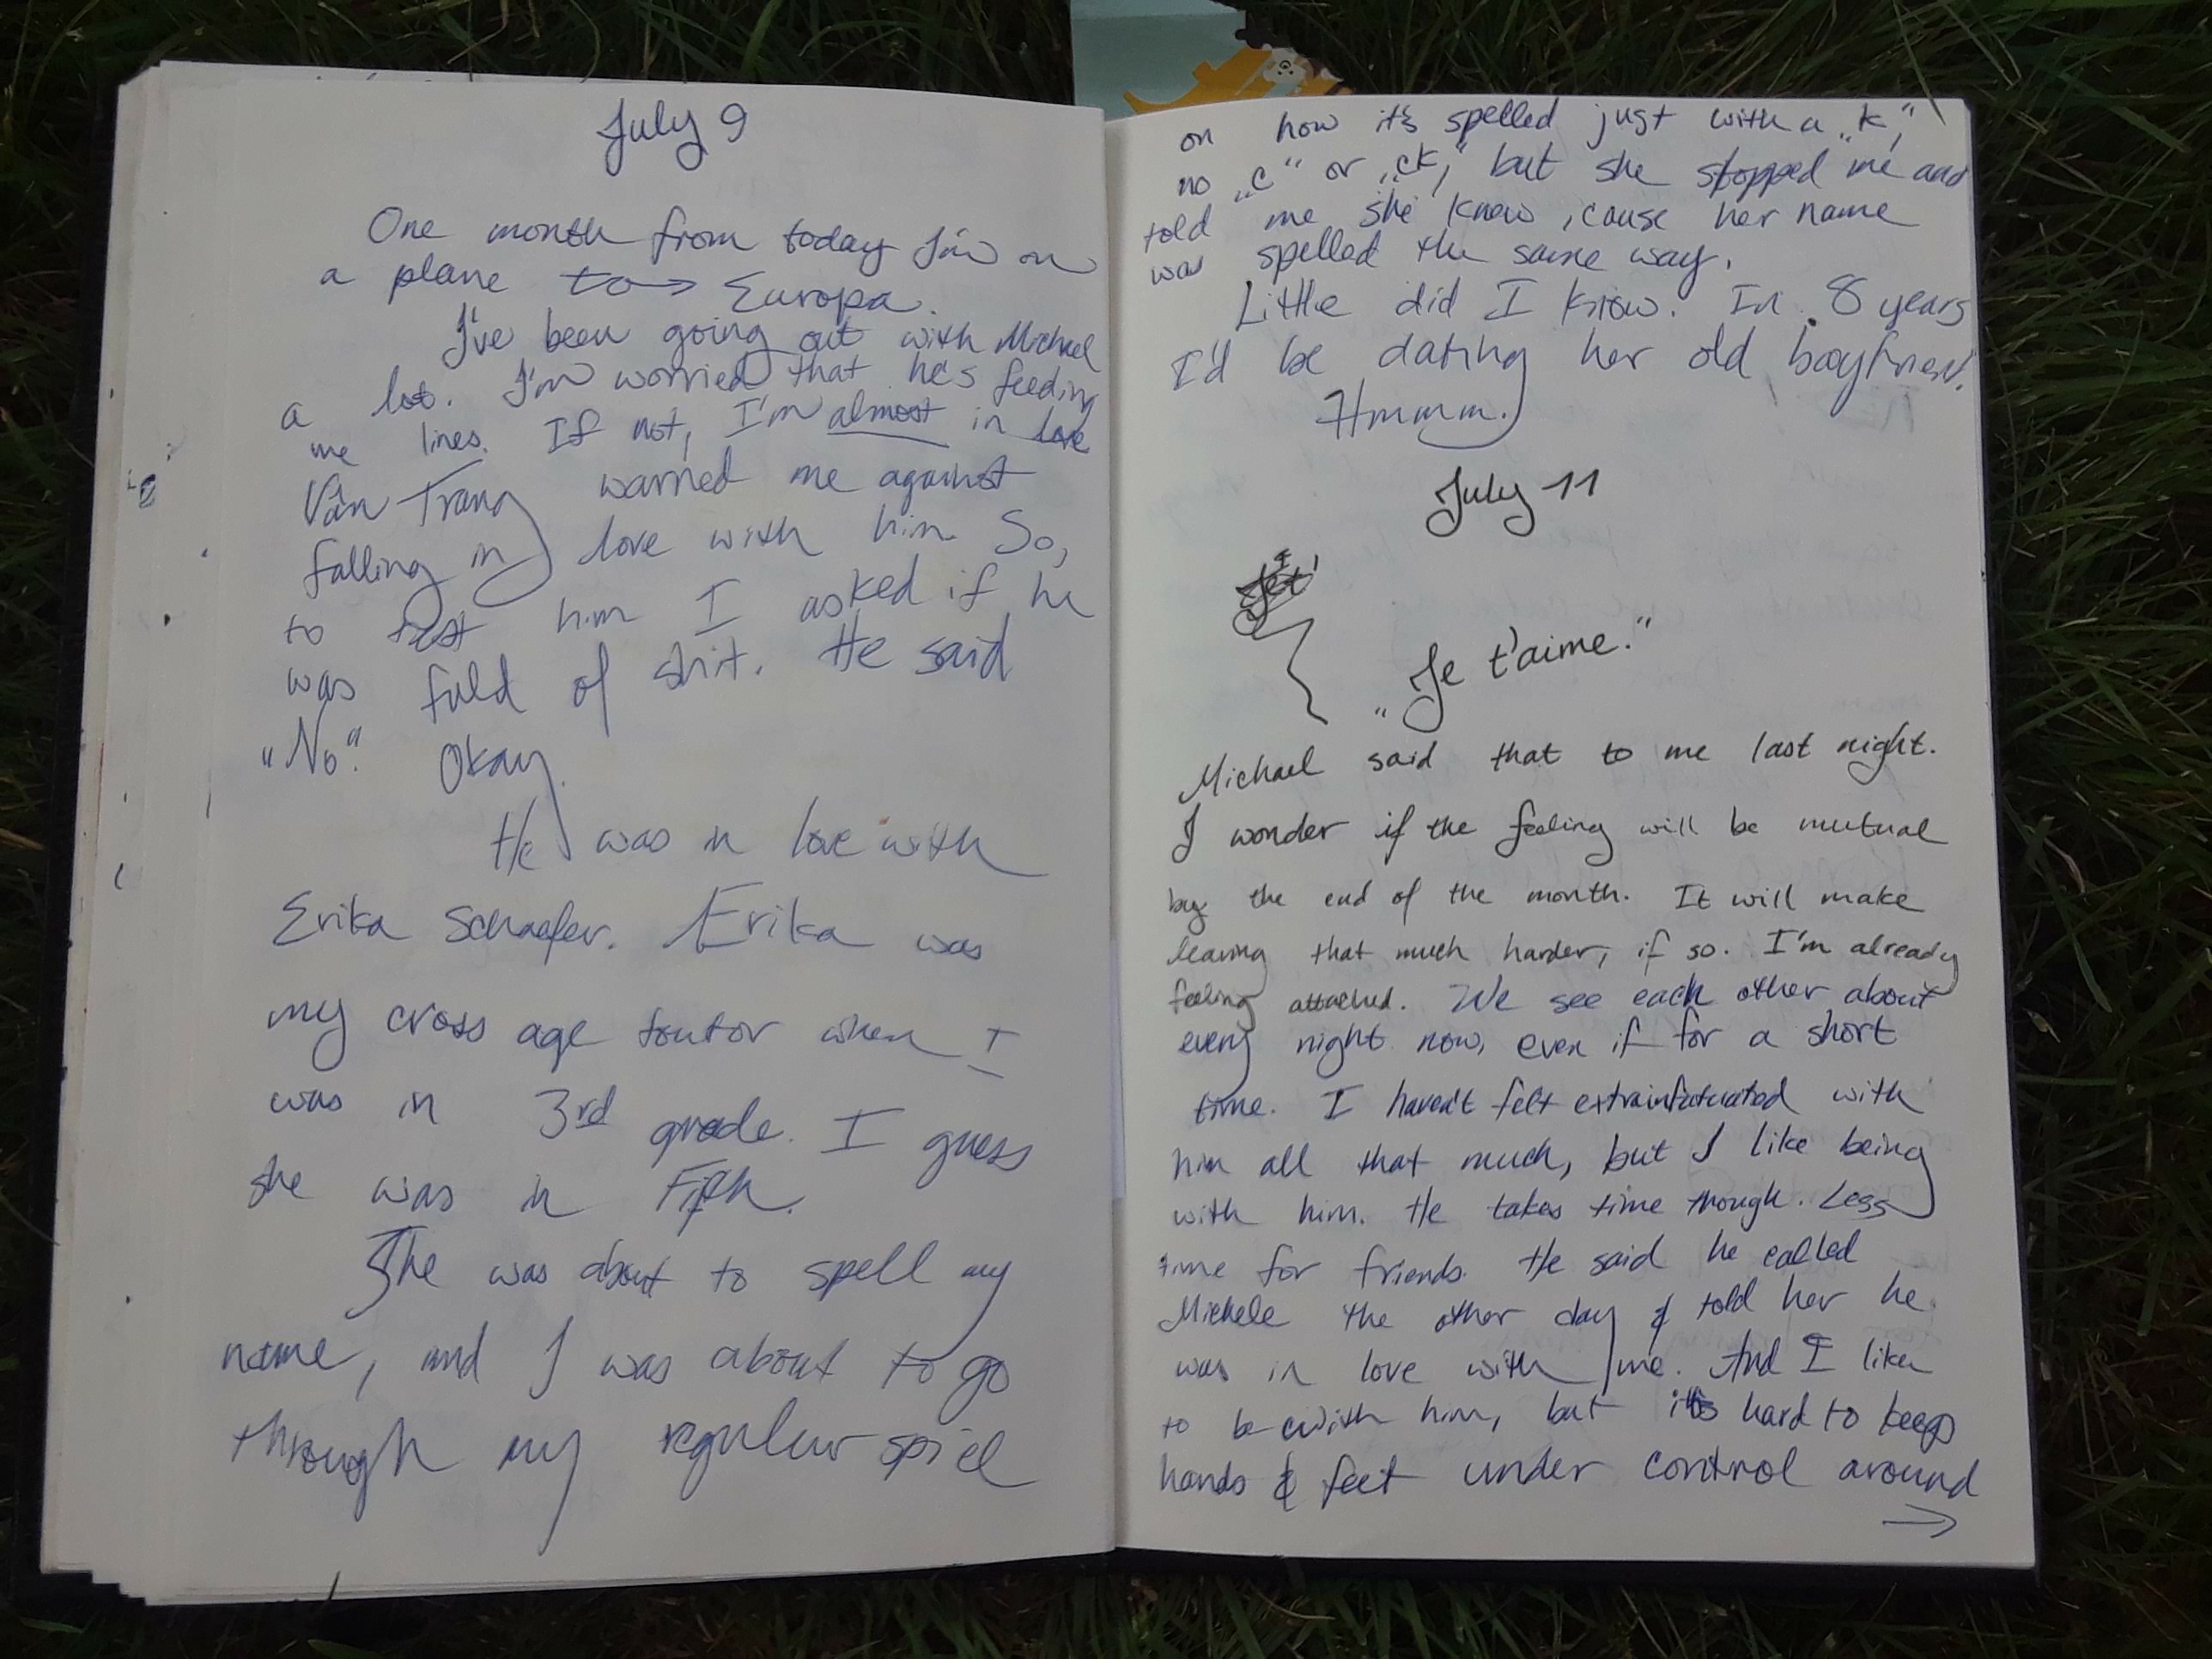 July 9
One month from today I'm on
a plane to → Europa.
I've been going out with Michael
a lot. I'm worried that he's feeding
me lines. If not, I'm almost in love
Vân Trang warned me against
falling in love with him. So,
to test him I asked if he
was full of shit. He said
„No.“ Okay.
He was in love with
Erika Schaefer. Erika was
my cross age toutor when I
was in 3rd grade. I guess
she was in Fifth.
She was about to spell my
name, and I was about to go
through my regular spiel
on how it's spelled just with a „k,“
no „c“ or „ck,“ but she stopped me and
told me she knew ,cause her name
was spelled the same way.
Little did I know. In 8 years
I'd be dating her old boyfriend.
Hmmm.
July 11
„Je t'aime.“
Michael said that to me last night.
I wonder if the feeling will be mutual
by the end of the month. It will make
leaving that much harder, if so. I'm already
feeling attached. We see each other about
every night now, even if for a short
time. I haven't felt extrainfatuated with
him all that much, but I like being
with him. He takes time though. Less
time for friends. He said he called
Michele the other day & told her he
was in love with me. And I like
to be with him, but it's hard to keep
hands & feet under control around
→